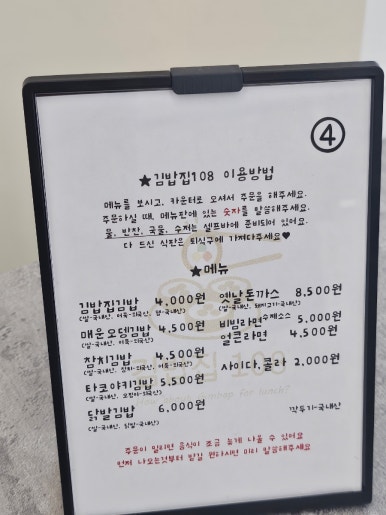 ④
★김밥집108 이용방법
메뉴를 보시고, 카운터로 오셔서 주문을 해주세요.
주문하실 때, 메뉴판에 있는 숫자를 말씀해주세요.
물, 반찬, 국물, 수저는 셀프바에 준비되어 있어요.
다 드신 식판은 퇴식구에 가져다주세요♥
★메뉴
김밥집김밥 4,000원
매운오뎅김밥 4,500원
참치김밥 4,500원
타코야키김밥 5,500원
닭발김밥 6,000원
(쌀-국내산, 닭발-국내산)
옛날돈까스 8,500원
(쌀-국내산, 돼지고기-국내산)
비빔라면 5,000원
얼큰라면 4,500원
사이다, 콜라 2,000원
깍두기-국내산
주문이 밀리면 음식이 조금 늦게 나올 수 있어요
먼저 나오는것부터 받길 원하시면 미리 말씀해주세요